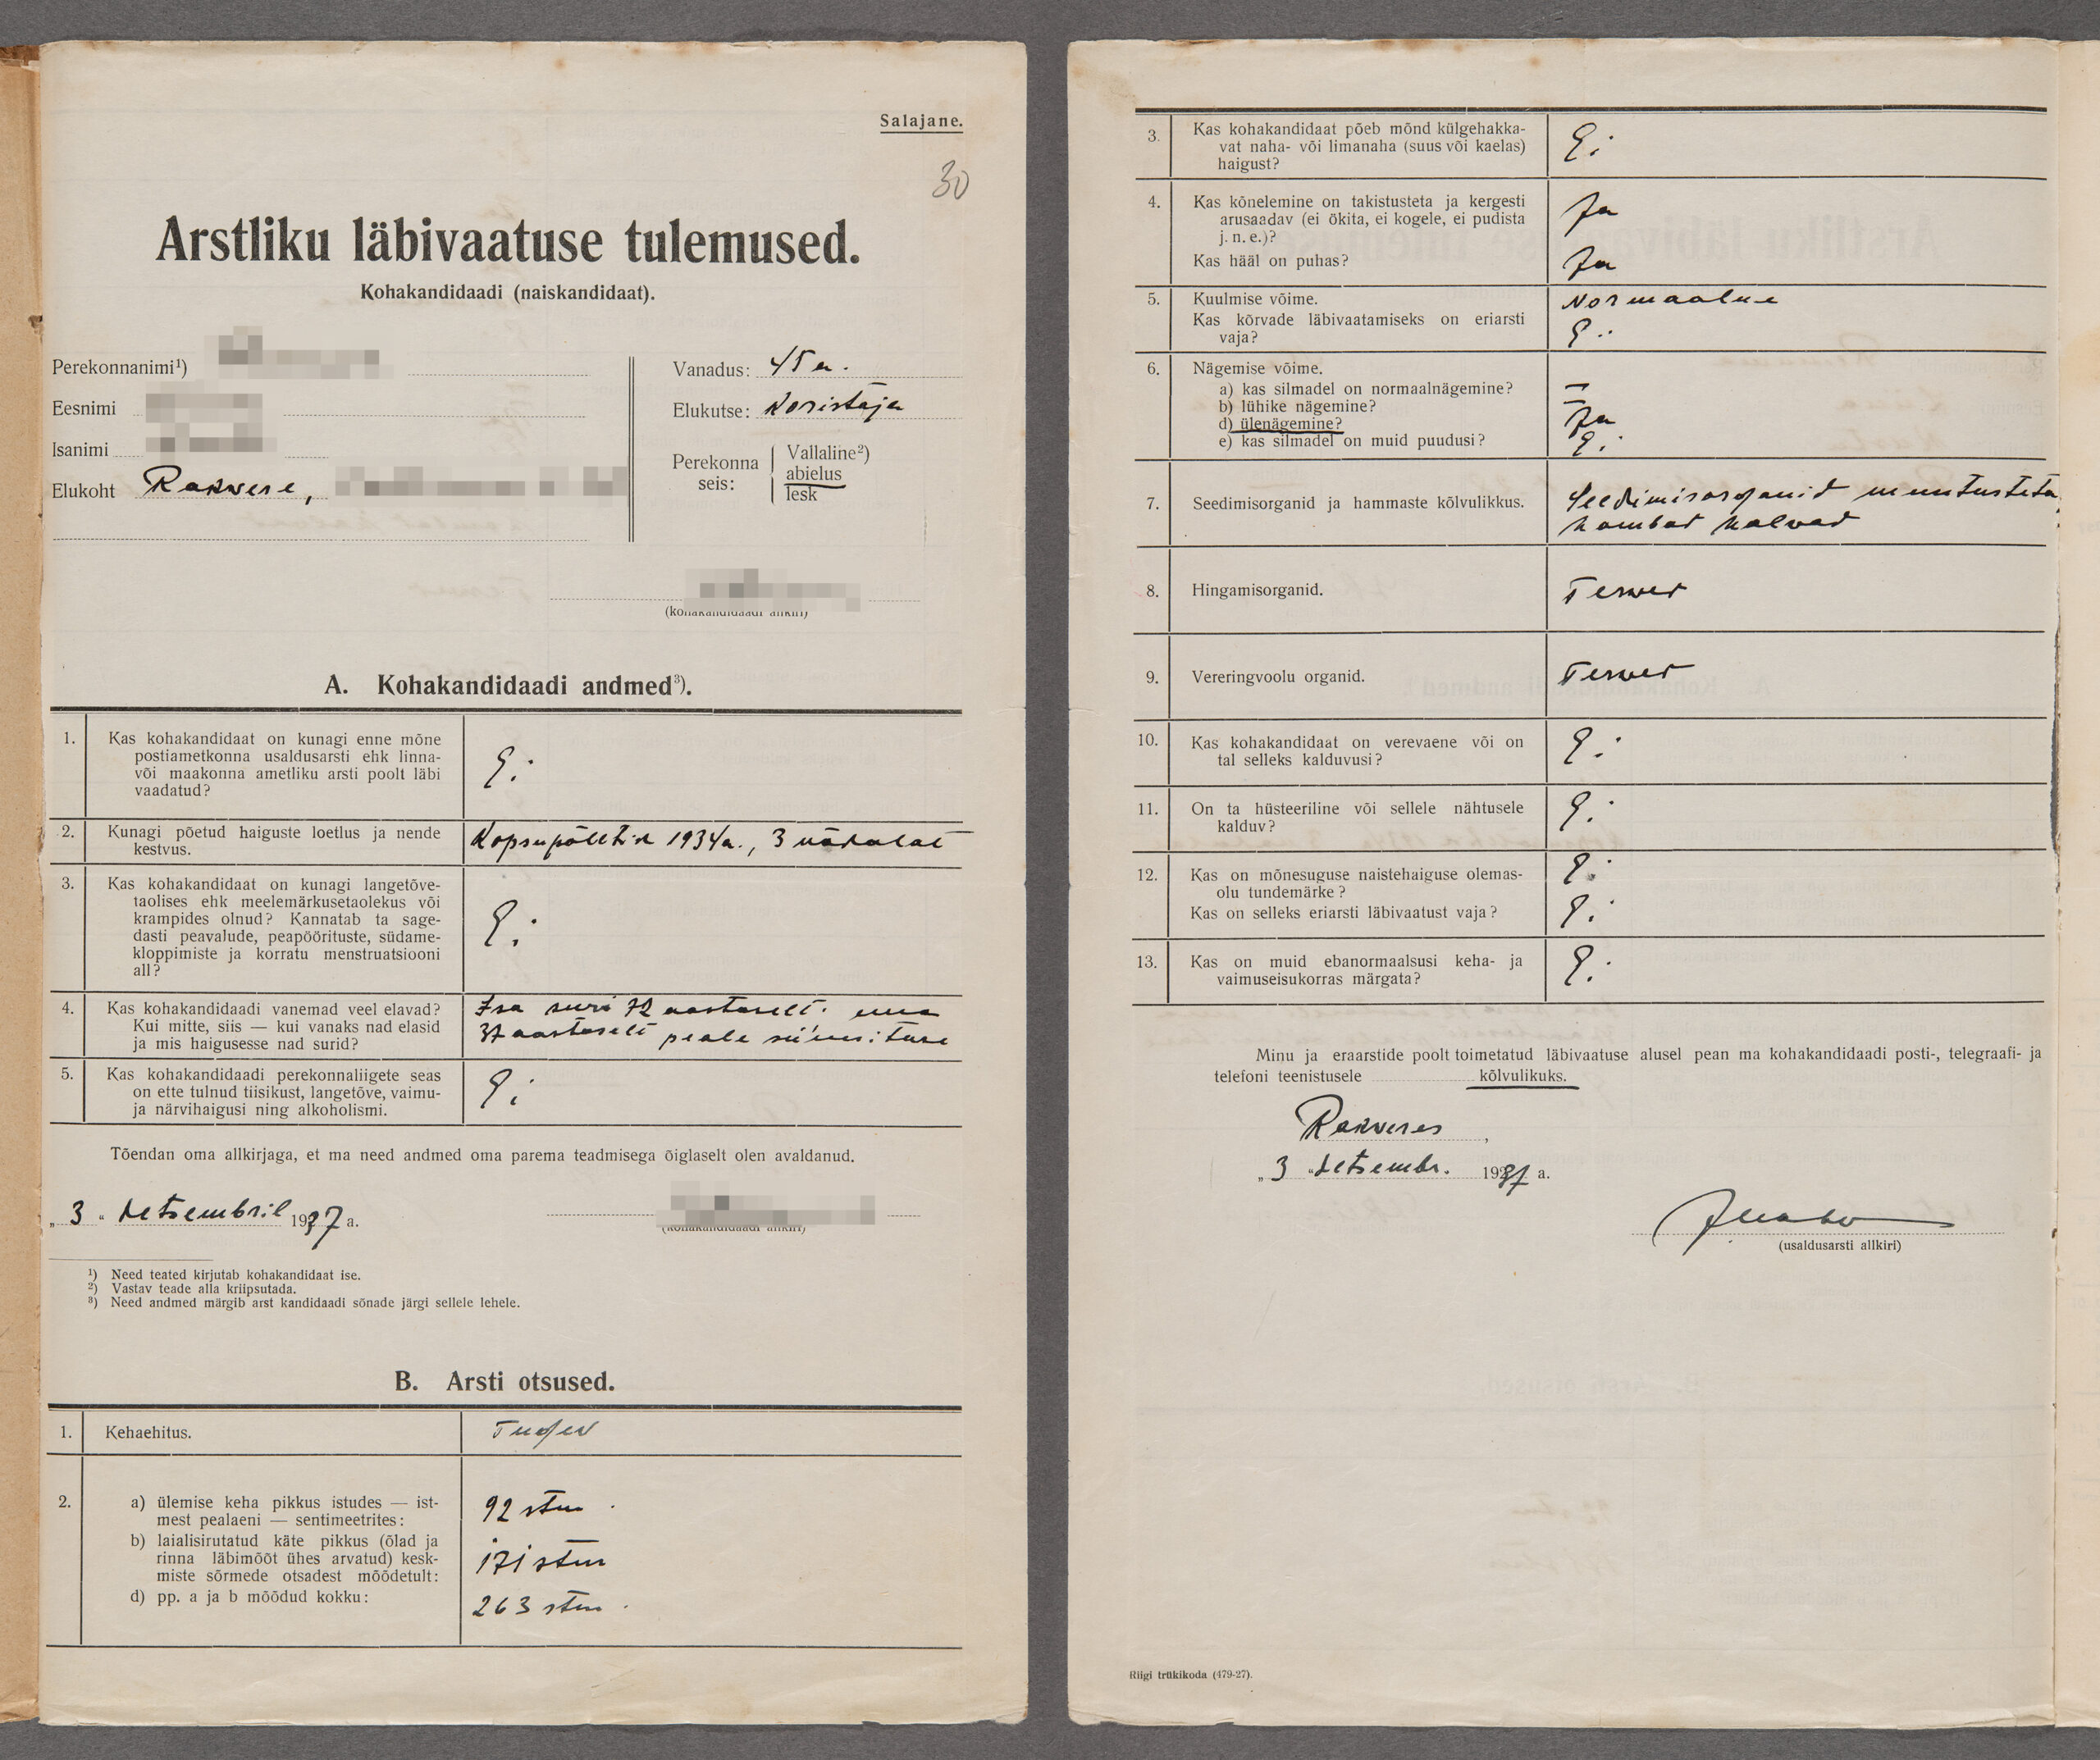 Salajane.
30
Arstliku läbivaatuse tulemused.
Kohakandidaadi (naiskandidaat).
Perekonnanimi¹)
Eesnimi
Isanimi
Elukoht Rakwere,
Vanadus: 45 a.
Elukutse: Koristaja
Perekonna seis:
Vallaline²)
abielus
lesk
(kohakandidaadi allkiri)
A. Kohakandidaadi andmed³).
1. Kas kohakandidaat on kunagi enne mõne
postiametkonna usaldusarsti ehk linna-
või maakonna ametliku arsti poolt läbi
vaadatud?
Ei
2. Kunagi põetud haiguste loetlus ja nende
kestvus.
Kopsupõletik 1934a., 3 nädalat
3. Kas kohakandidaat on kunagi langetõve-
taolises ehk meelemärkusetaolekus või
krampides olnud? Kannatab ta sage-
dasti peavalude, peapöörituste, südame-
kloppimiste ja korratu menstruatsiooni
all?
Ei
4. Kas kohakandidaadi vanemad veel elavad?
Kui mitte, siis — kui vanaks nad elasid
ja mis haigusesse nad surid?
Isa suri 72 aastaselt. ema
37 aastaselt peale sünnituse
5. Kas kohakandidaadi perekonnaliigete seas
on ette tulnud tiisikust, langetõve, vaimu-
ja närvihaigusi ning alkoholismi.
Ei
Tõendan oma allkirjaga, et ma need andmed oma parema teadmisega õiglaselt olen avaldanud.
„ 3 “ detsembril 1937 a.
(kohakandidaadi allkiri)
¹) Need teated kirjutab kohakandidaat ise.
²) Vastav teade alla kriipsutada.
³) Need andmed märgib arst kandidaadi sõnade järgi sellele lehele.
B. Arsti otsused.
1. Kehaehitus.
Tugev
2. a) ülemise keha pikkus istudes — ist-
mest pealaeni — sentimeetrites:
92 stm.
b) laialisirutatud käte pikkus (õlad ja
rinna läbimõõt ühes arvatud) kesk-
miste sõrmede otsadest mõõdetult:
171 stm
d) pp. a ja b mõõdud kokku:
263 stm.
3. Kas kohakandidaat põeb mõnd külgehakka-
vat naha- või limanaha (suus või kaelas)
haigust?
Ei
4. Kas kõnelemine on takistusteta ja kergesti
arusaadav (ei ökita, ei kogele, ei pudista
j. n. e.)?
Ja
Kas hääl on puhas?
Ja
5. Kuulmise võime.
Normaalne
Kas kõrvade läbivaatamiseks on eriarsti
vaja?
Ei
6. Nägemise võime.
a) kas silmadel on normaalnägemine?
—
b) lühike nägemine?
—
d) ülenägemine?
Ja
e) kas silmadel on muid puudusi?
Ei
7. Seedimisorganid ja hammaste kõlvulikkus.
Seedimisorganid muutusteta,
hambad halvad
8. Hingamisorganid.
Terved
9. Vereringvoolu organid.
Terved
10. Kas kohakandidaat on verevaene või on
tal selleks kalduvusi?
Ei
11. On ta hüsteeriline või sellele nähtusele
kalduv?
Ei
12. Kas on mõnesuguse naistehaiguse olemas-
olu tundemärke?
Ei
Kas on selleks eriarsti läbivaatust vaja?
Ei
13. Kas on muid ebanormaalsusi keha- ja
vaimuseisukorras märgata?
Ei
Minu ja eraarstide poolt toimetatud läbivaatuse alusel pean ma kohakandidaadi posti-, telegraafi- ja
telefoni teenistusele kõlvulikuks.
Rakveres,
„ 3 “ detsembr. 1937 a.
(usaldusarsti allkiri)
Riigi trükikoda (479-27).